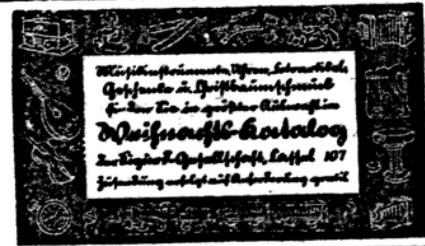 Musikinstrumente, Uhren, Lederartikel,
Geschenke u. Christbaumschmuck
finden Sie in größter Auswahl im
Weihnachts-Katalog
der Sigurd-Gesellschaft, Cassel 107
Zusendung erfolgt auf Anforderung gratis